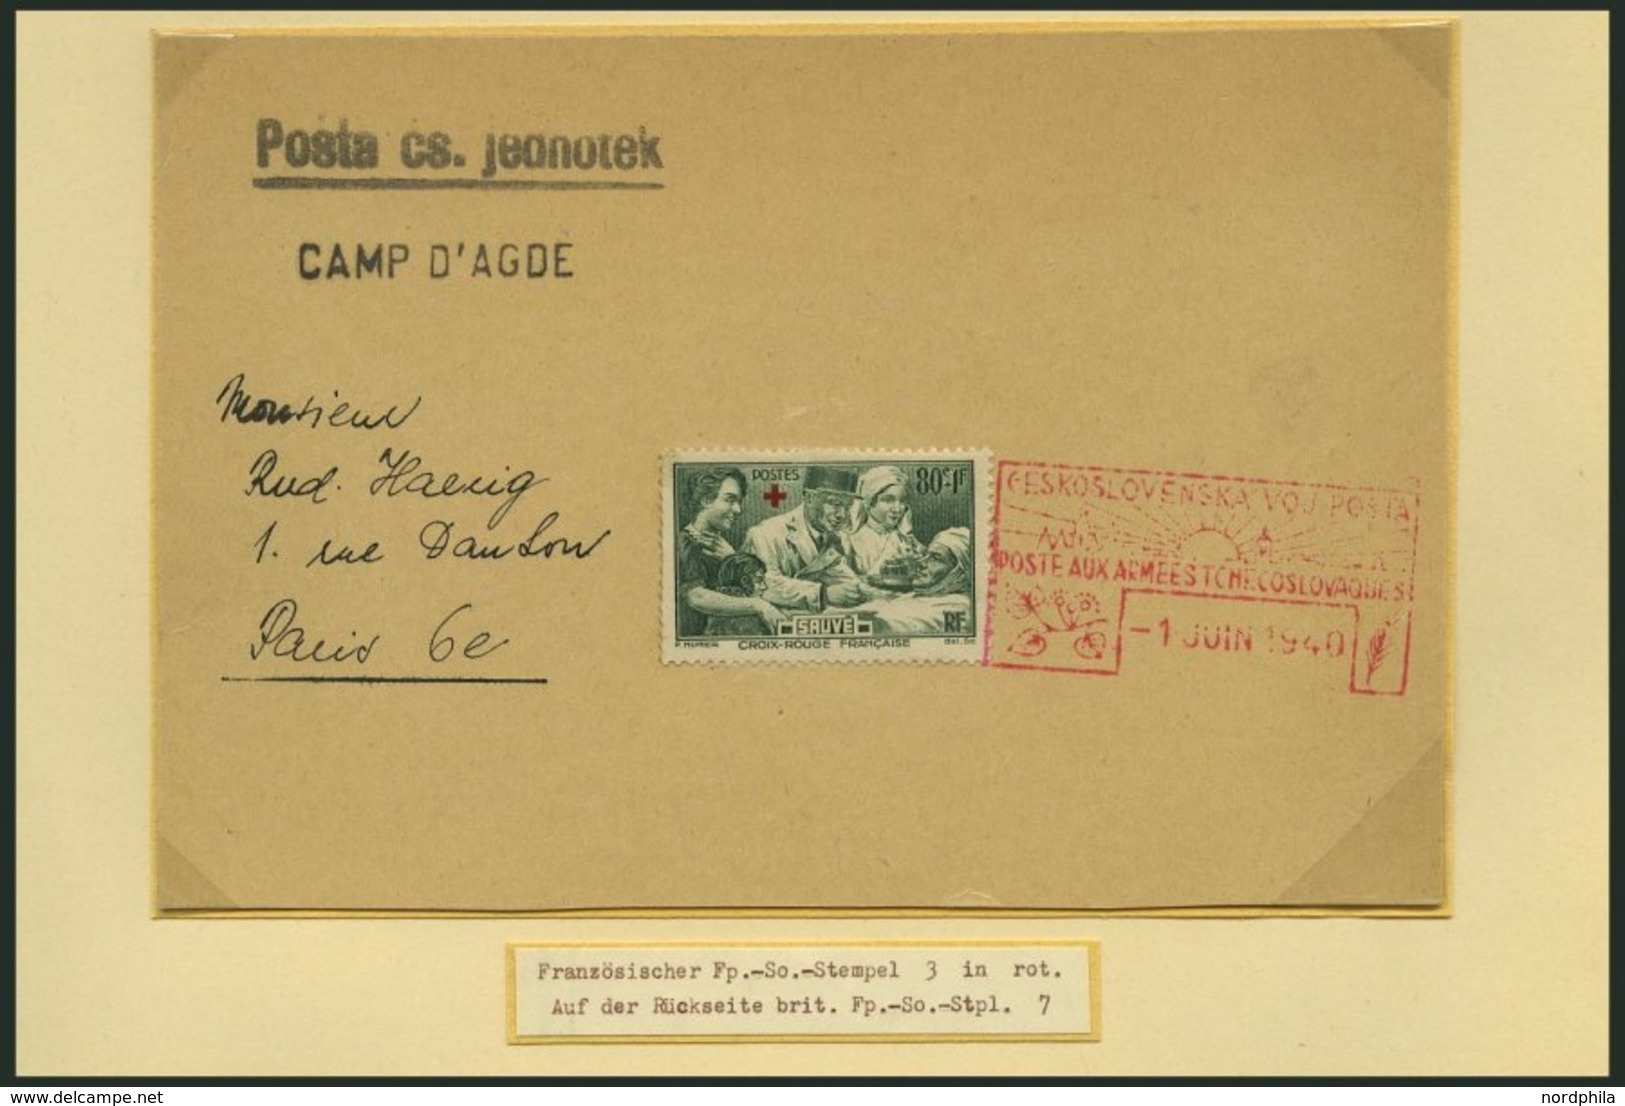 Posta cs. jednotek
CAMP D'AGDE
Monsieur
Rud. Haenig
1. rue Danton
Paris 6e
POSTES
80c+1F
SAUVÉ
RF
CROIX-ROUGE FRANÇAISE
ČESKOSLOVENSKÁ VOJ. POŠTA
POSTE AUX ARMÉES TCHÉCOSLOVAQUES
-1 JUIN 1940
Französischer Fp.-So.-Stempel 3 in rot.
Auf der Rückseite brit. Fp.-So.-Stpl. 7
www.delcampe.net
nordphila